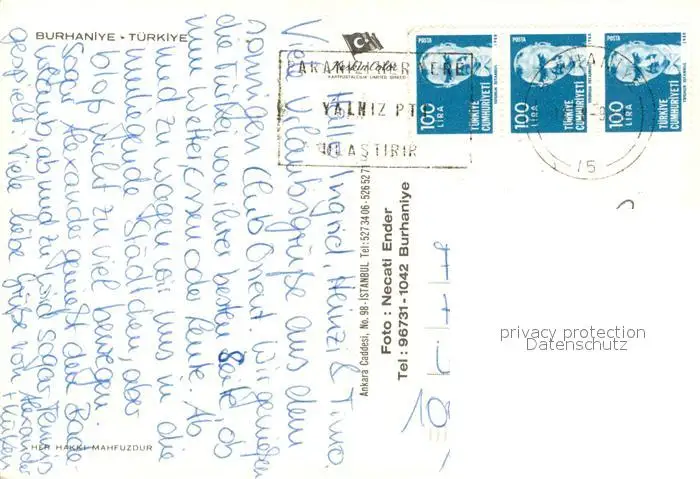 BURHANİYE - TÜRKİYE
HER HAKKI MAHFUZDUR
Hallo Ingrid, Heinzi & Timo.
Viele Urlaubsgrüße aus dem
Club Orient. Wir genießen
die Türkei von ihrer besten Seite, ob
nun Wetter, Essen oder Leute. Ab
und zu wagen wir uns in die
umliegende Städtchen, aber
bloß nicht zu viel bewegen.
Alexander genießt den Bade-
urlaub, ab und zu wird sogar Tennis
gespielt. Viele liebe Grüße von Alexander
KARTPOSTALCILIK LIMITED ŞİRKETİ
Ankara Caddesi, No. 98 - İSTANBUL Tel: 527 34 06 - 526 52 71
Foto : Necati Ender
Tel : 96731-1042 Burhaniye
YALNIZ PTT
ULAŞTIRIR
POSTA 1988
100 LIRA
TÜRKİYE CUMHURİYETİ
POSTA 1988
100 LIRA
TÜRKİYE CUMHURİYETİ
POSTA 1988
100 LIRA
TÜRKİYE CUMHURİYETİ
15
privacy protection
Datenschutz